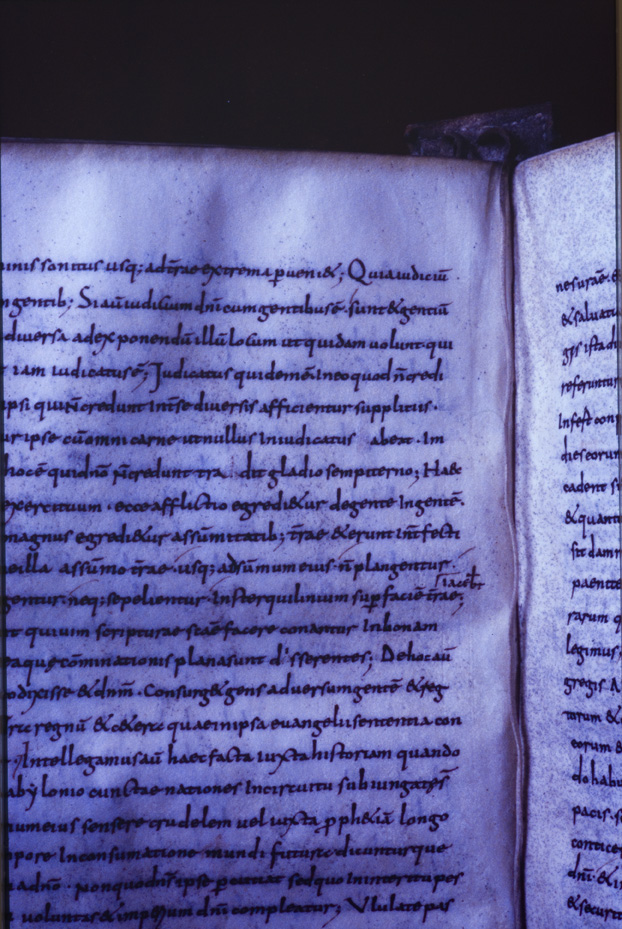 sonitus usq; ad t̄rae extrema p̱ueni&; Quia iudiciū
gentib; Si aū iudicium dn̄i cum gentibus ē. sunt & gentiū
diuersa ad exponendū illū locum ut quidam uolunt qui
iam iudicatus ē; Iudicatus quidem ē In eo quod n̄ credi
ipsi qui n̄ credunt In t̄ se diuersis afficientur suppliciis.
ipse cū omni carne ut nullus Iniudicatus abeat. Im
hoc ē quidn̄o n̄ credunt tra dit gladio sempiterno; Haec
exercituum. ecce afflictio egredi&ur de gente In gentē.
magnus egredi&ur a summitatib; t̄rae & erunt Int̄fecti
illa a ssūmo t̄rae. usq; ad sūmum eius. n̄ plangentur.
gentur. neq; sepelientur. In sterquilinium sup̱ faciē t̄rae; iaceb̄t
qui uim scripturae scāe facere conantur In bonam
eaque cōminationis plana sunt d'sserentes; De hoc aū
dixisse & dn̄m. Consurg& gens aduersum gentē & reg
regnū & c&era quae in ipsa euangelii sententia con
Intellegamus aū haec facta iuxta historiam quando
babylonio cunctae nationes In circuitu subiugatę s̄
sensere crudelem uel iuxta p̱ph&iā longo
tempore In consummatione mundi futura dicuntur que
a dn̄o. non quod dn̄s ipse p̱cutiat sed quo In interitu pes
uoluntas & impiorum dn̄i compleatur; Vlulate pas
& saluatu
referuntur
Infest con
dies eorum
cadent
& quant
sit damn
paenite
rarum q
legimus
gregis. A
eorum &
do habu
pacis. s
contice
dn̄i. &
& secur